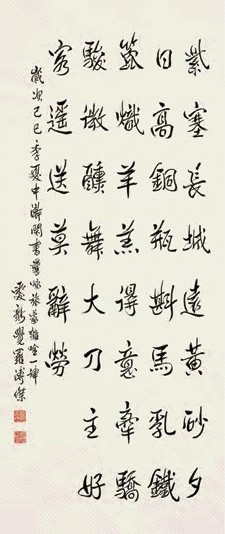 紫塞長城遠黃砂夕
日高銅瓶斟馬乳鐵
籤熾羊羔得意牽驕
駿微醺舞大刀主好
客遥送莫辭勞
歲次己巳季夏中澣閑書舊
愛新覺羅溥傑